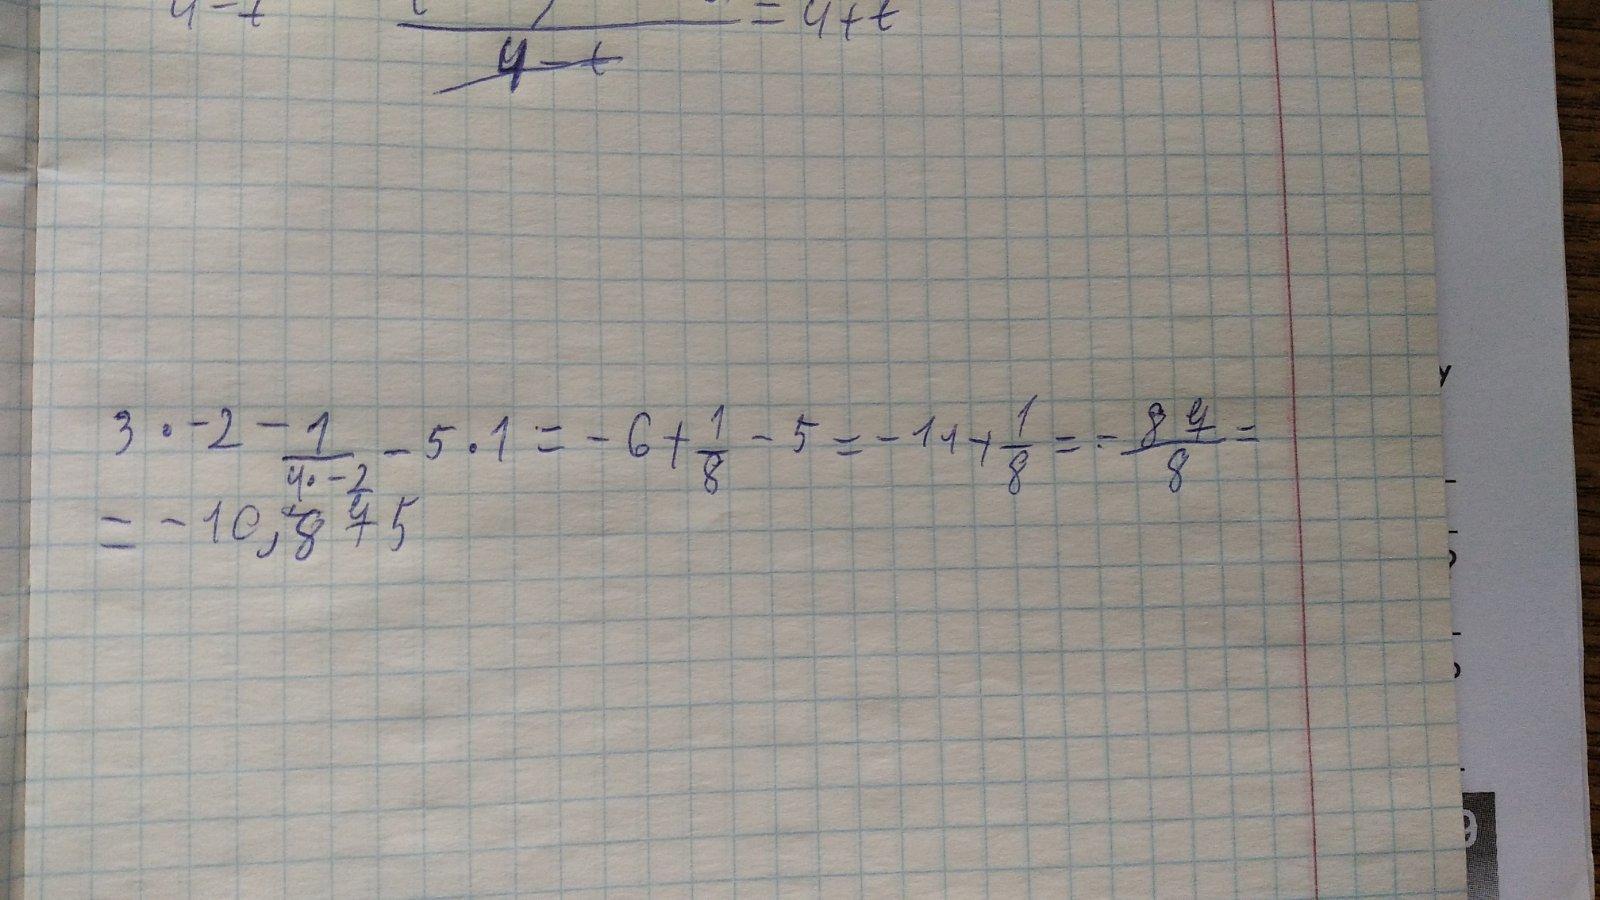 4-t = 4+t
4-t
3 · -2 - 1/(4·-2) - 5·1 = -6 + 1/8 - 5 = -11 + 1/8 = - 87/8 =
= -10,875
y
9